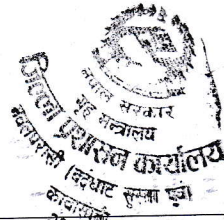 नेपाल सरकार
गृह मन्त्रालय
जिल्ला प्रशासन कार्यालय
नवलपरासी (बर्दघाट सुस्ता पूर्व)